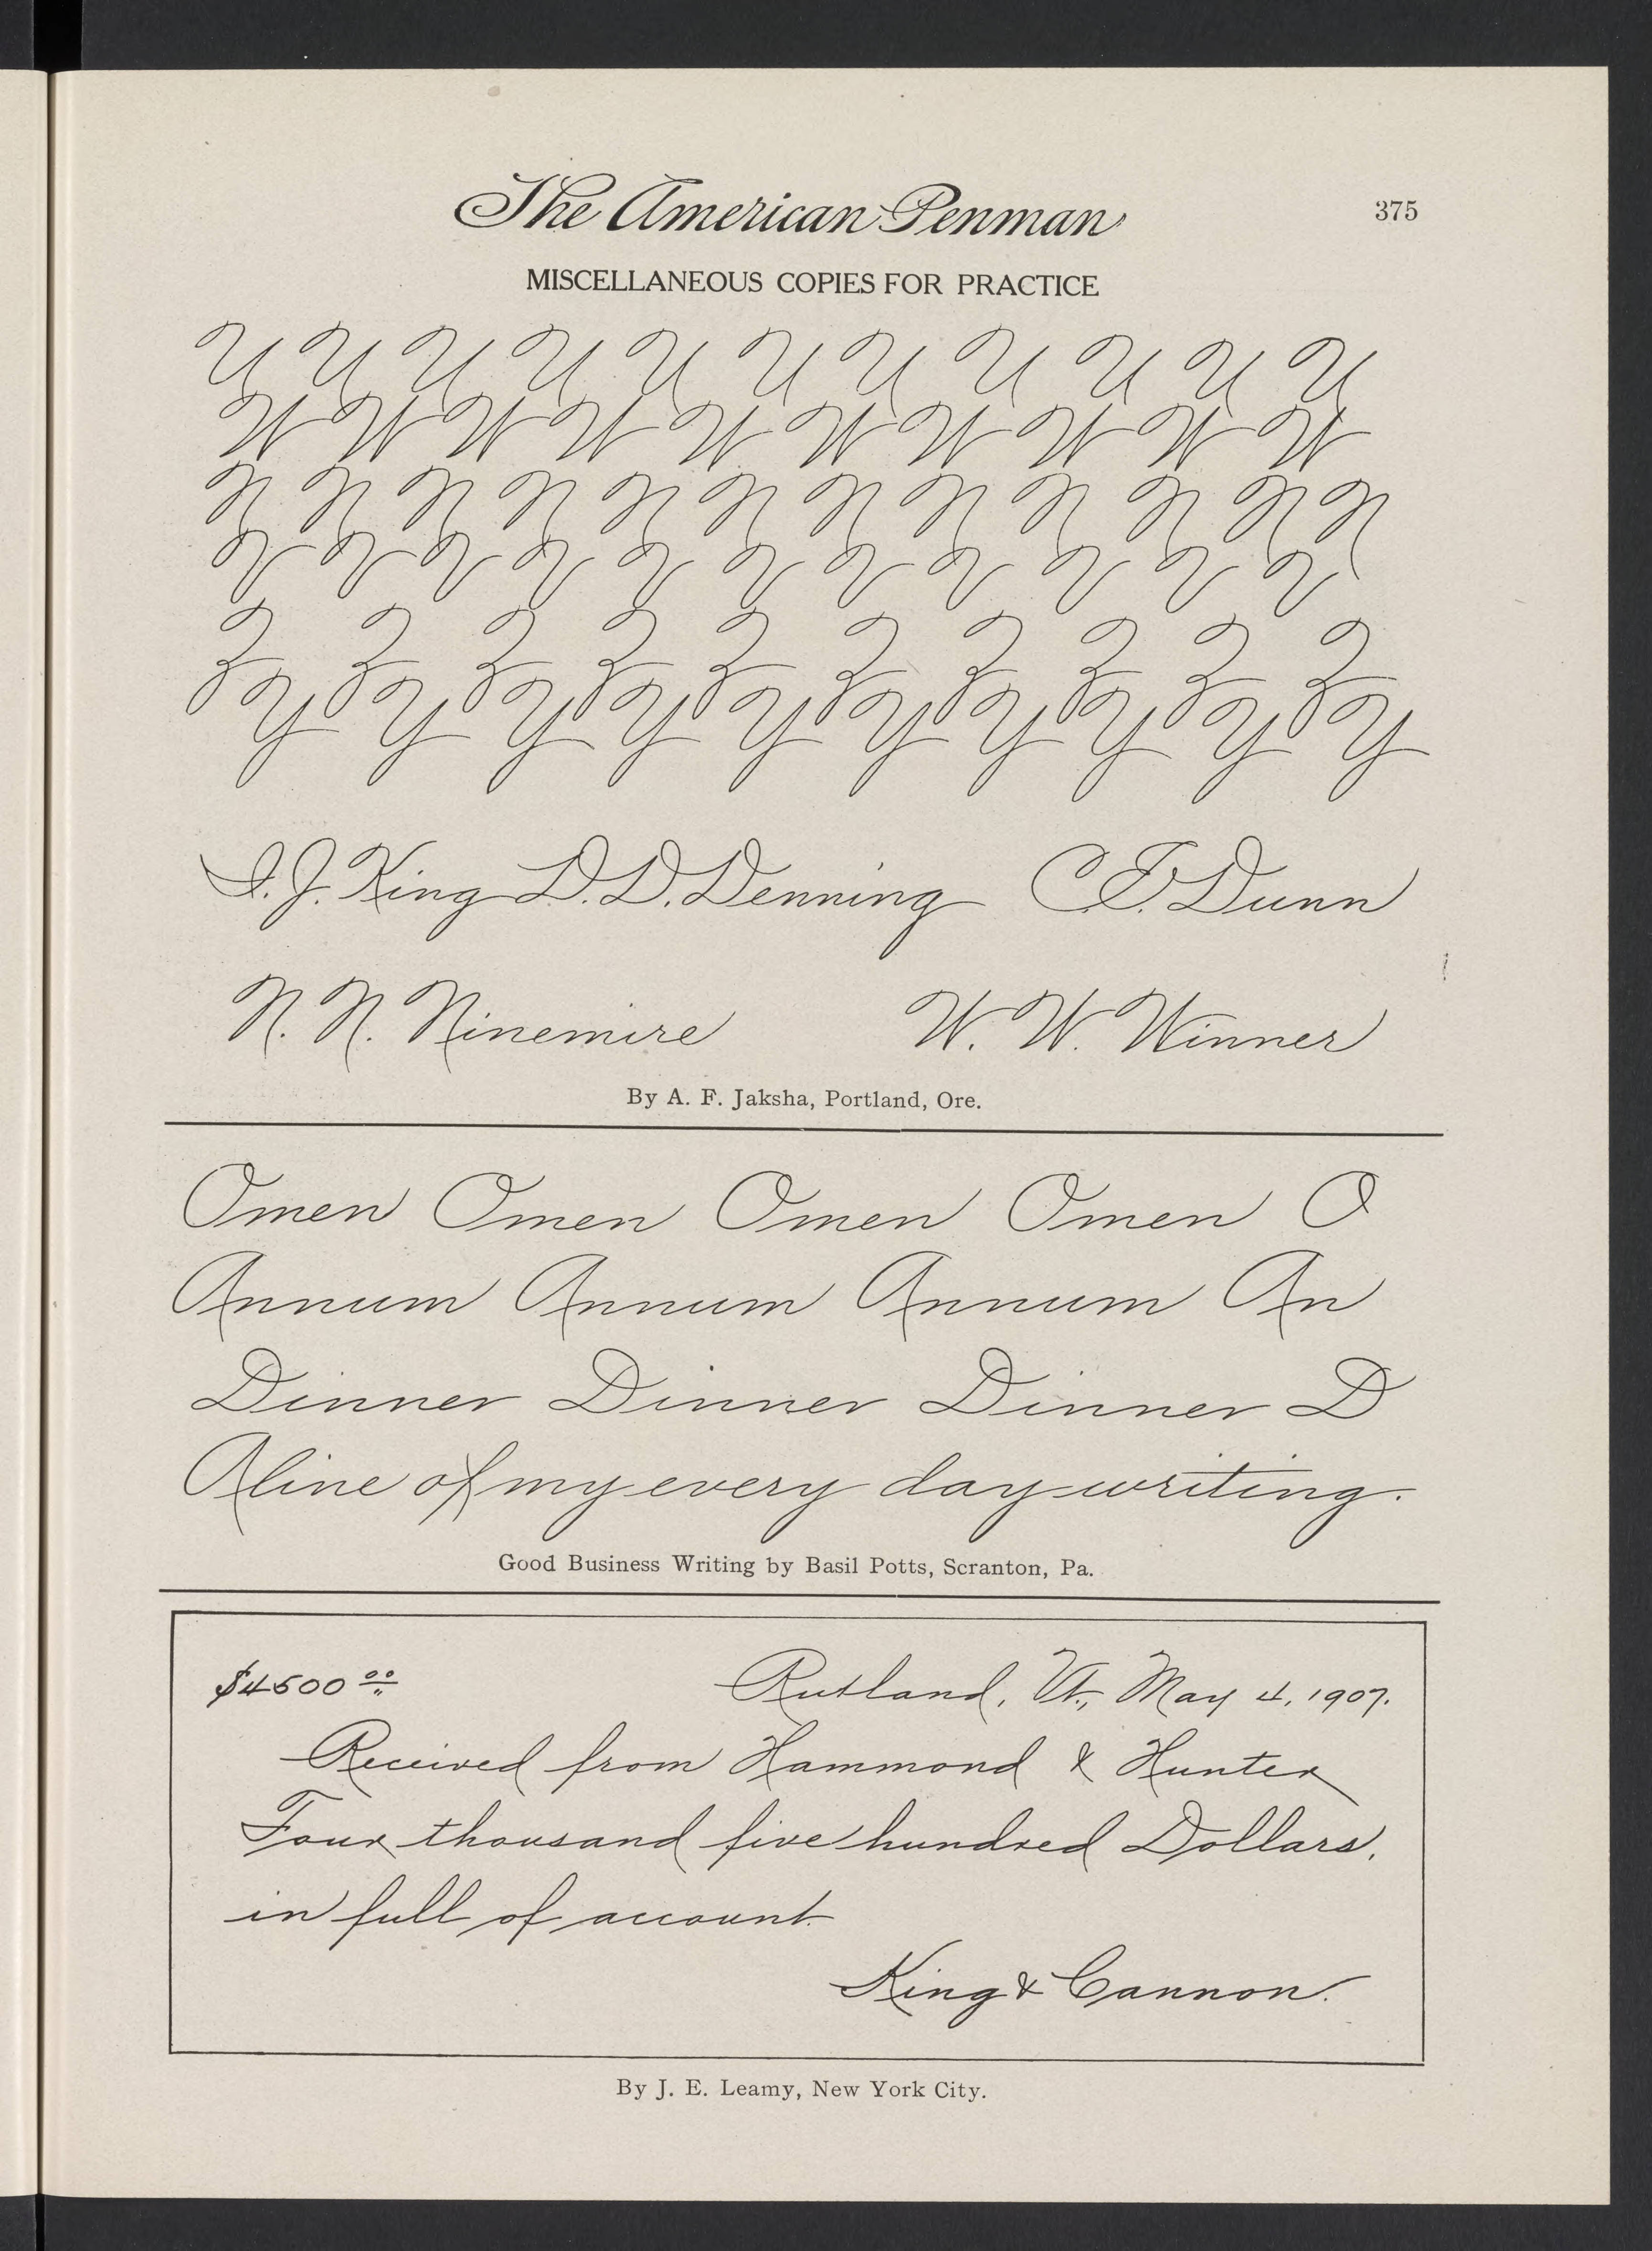 The American Penman
375
MISCELLANEOUS COPIES FOR PRACTICE
U U U U U U U U U U U
W W W W W W W W W W
N N N N N N N N N N N N
V V V V V V V V V V V
Z Z Z Z Z Z Z Z Z Z
Y Y Y Y Y Y Y Y Y Y
I. J. King D. D. Denning C. F. Dunn
N. N. Ninemire W. W. Winner
By A. F. Jaksha, Portland, Ore.
Omen Omen Omen Omen O
Annum Annum Annum An
Dinner Dinner Dinner D
A line of my every day writing.
Good Business Writing by Basil Potts, Scranton, Pa.
$4500 00 Rutland, Vt., May 4, 1907.
Received from Hammond & Hunter
Four thousand five hundred Dollars.
in full of account.
King & Cannon.
By J. E. Leamy, New York City.